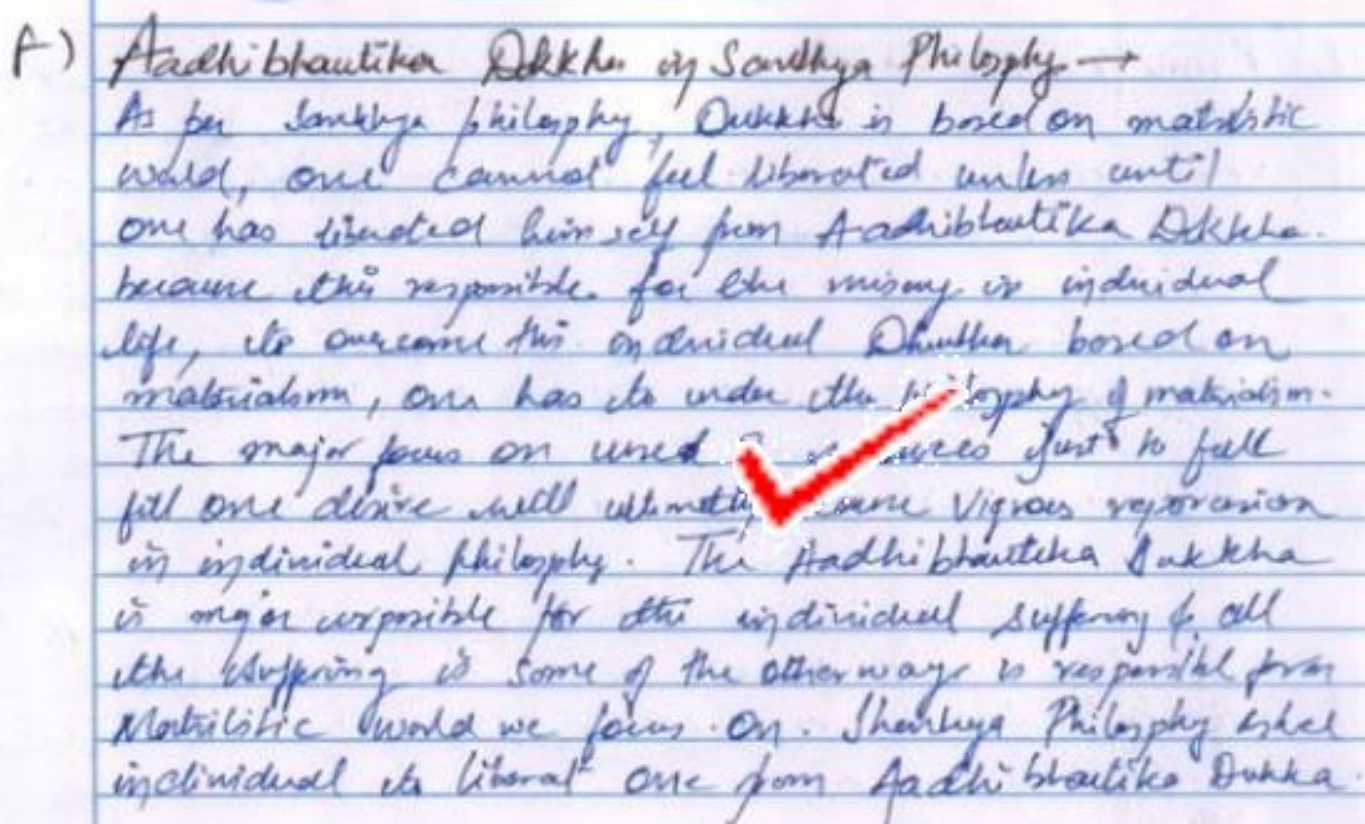 f) Aadhibhautika Dukkha in Sankhya Philosphy →
As per Sankhya philosphy, Dukkha is based on matrilistic
world, one cannot feel liberated unless until
one has liberated himself from Aadhibhautika Dukkha.
because this responsible for the misery in individual
life, to overcome this individual Dhukha based on
materialism, one has to under the philosphy of materialism.
The major focus on used just to full
fill one desire will ultimately Vigrous
in individual philosphy. The Aadhibhautika Dukkha
is major for the individual suffering & all
the suffering is some of the other ways is responsibl from
Matrilistic world we focus on. Shankhya Philosphy asked
individual to liberat one from Aadhibhautika Dukkha.